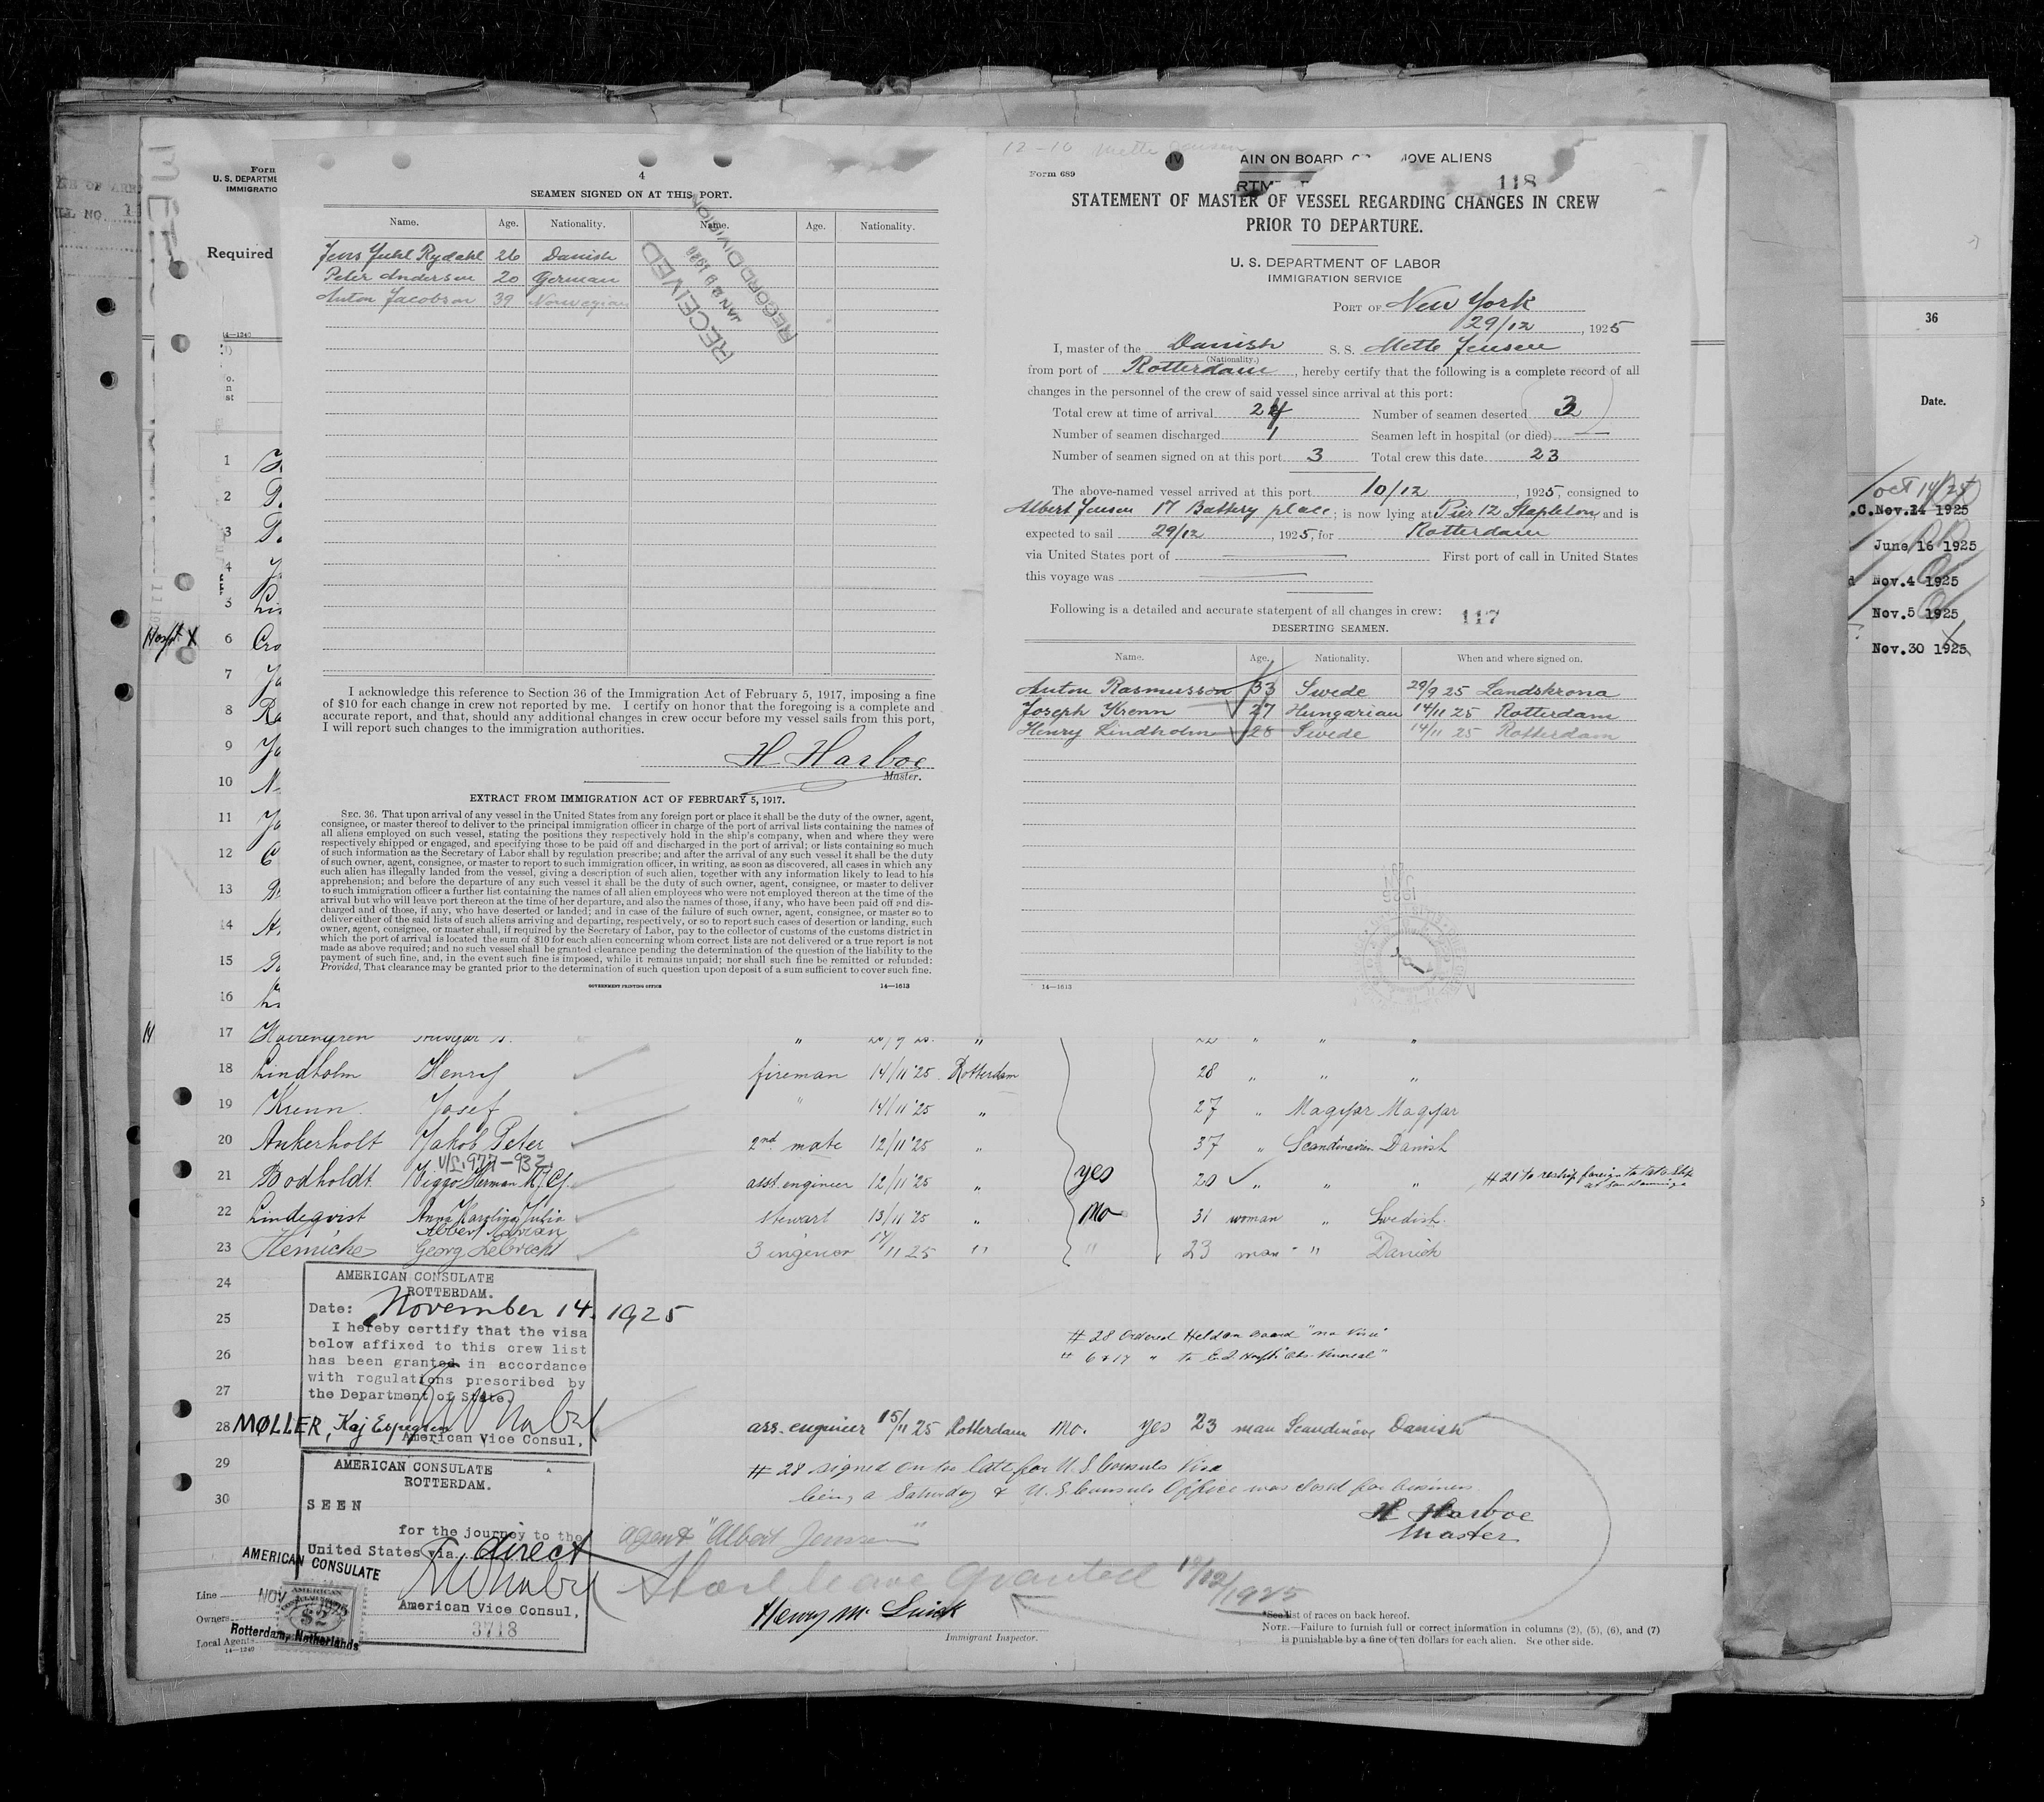 4
SEAMEN SIGNED ON AT THIS PORT.
Name. Age. Nationality. Name. Age. Nationality.
Jens Juhl Rydahl 26 Danish
Peter Andersen 20 German
Anton Jacobson 39 Norwegian
RECEIVED
JAN 28 1926
RECORD DIVISION
I acknowledge this reference to Section 36 of the Immigration Act of February 5, 1917, imposing a fine
of $10 for each change in crew not reported by me. I certify on honor that the foregoing is a complete and
accurate report, and that, should any additional changes in crew occur before my vessel sails from this port,
I will report such changes to the immigration authorities.
H Harboe
Master.
EXTRACT FROM IMMIGRATION ACT OF FEBRUARY 5, 1917.
SEC. 36. That upon arrival of any vessel in the United States from any foreign port or place it shall be the duty of the owner, agent,
consignee, or master thereof to deliver to the principal immigration officer in charge of the port of arrival lists containing the names of
all aliens employed on such vessel, stating the positions they respectively hold in the ship's company, when and where they were
respectively shipped or engaged, and specifying those to be paid off and discharged in the port of arrival; or lists containing so much
of such information as the Secretary of Labor shall by regulation prescribe; and after the arrival of any such vessel it shall be the duty
of such owner, agent, consignee, or master to report to such immigration officer, in writing, as soon as discovered, all cases in which any
such alien has illegally landed from the vessel, giving a description of such alien, together with any information likely to lead to his
apprehension; and before the departure of any such vessel it shall be the duty of such owner, agent, consignee, or master to deliver
to such immigration officer a further list containing the names of all alien employees who were not employed thereon at the time of the
arrival but who will leave port thereon at the time of her departure, and also the names of those, if any, who have been paid off and dis-
charged and of those, if any, who have deserted or landed; and in case of the failure of such owner, agent, consignee, or master so to
deliver either of the said lists of such aliens arriving and departing, respectively, or so to report such cases of desertion or landing, such
owner, agent, consignee, or master shall, if required by the Secretary of Labor, pay to the collector of customs of the customs district in
which the port of arrival is located the sum of $10 for each alien concerning whom correct lists are not delivered or a true report is not
made as above required; and no such vessel shall be granted clearance pending the determination of the question of the liability to the
payment of such fine, and, in the event such fine is imposed, while it remains unpaid; nor shall such fine be remitted or refunded:
Provided, That clearance may be granted prior to the determination of such question upon deposit of a sum sufficient to cover such fine.
GOVERNMENT PRINTING OFFICE 14—1613
12-10 Mette Jensen
AIN ON BOARD OVE ALIENS
Form 689
118
STATEMENT OF MASTER OF VESSEL REGARDING CHANGES IN CREW
PRIOR TO DEPARTURE.
U. S. DEPARTMENT OF LABOR
IMMIGRATION SERVICE
PORT OF New York
29/12, 1925
I, master of the Danish S. S. Mette Jensen
(Nationality.)
from port of Rotterdam, hereby certify that the following is a complete record of all
changes in the personnel of the crew of said vessel since arrival at this port:
Total crew at time of arrival 24 Number of seamen deserted 3
Number of seamen discharged 1 Seamen left in hospital (or died) —
Number of seamen signed on at this port 3 Total crew this date 23
The above-named vessel arrived at this port 10/12, 1925, consigned to
Albert Jensen 17 Battery place; is now lying at Pier 12 Stapleton, and is
expected to sail 29/12, 1925, for Rotterdam
via United States port of First port of call in United States
this voyage was
Following is a detailed and accurate statement of all changes in crew: 117
DESERTING SEAMEN.
Name. Age. Nationality. When and where signed on.
Anton Rasmusson 33 Swede 29/9 25 Landskrona
Joseph Krenn 27 Hungarian 14/11 25 Rotterdam
Henry Lindholm 28 Swede 14/11 25 Rotterdam
14—1613
Form
U. S. DEPARTME
IMMIGRATIO
Required
14—1240
1
2
3
4
5
Hospt. X 6 Cro
7
8
9
10
11
12
13
14
15
16
36
Date.
Oct 14/25
.C. Nov. 24 1925
June 16 1925
d Nov. 4 1925
Nov. 5 1925
Nov. 30 1925
17
18 Lindholm Henry fireman 14/11'25 Rotterdam 28 " " "
19 Krenn. Josef " 14/11'25 " 27 " Magyar Magyar
20 Ankerholt Jakob Peter 2nd mate 12/11'25 37 " Scandinavian Danish
21 Bodholdt Viggo Herman asst. engineer 12/11'25 " yes 20 " " "
22 Lindeqvist Anna Karolina Julia stewart 13/11'25 " no 31 woman " Swedish.
23 Georg Lebrecht 3 ingenior 14/11 25 " " 23 man " " Danish
24
25
26
27
AMERICAN CONSULATE
ROTTERDAM.
Date: November 14. 1925
I hereby certify that the visa
below affixed to this crew list
has been granted in accordance
with regulations prescribed by
the Department of State.
American Vice Consul,
# 28 Ordered Held on board "no Visa"
28 MØLLER, Kaj Espegren ass. engineer 15/11 25 Rotterdam no. yes 23 man Scandinav Danish
29 # 28 signed on too late for U.S. Consuls Visa
being a Saturday & U.S. Consuls Office was closed for business.
30
H Harboe
Master
AMERICAN CONSULATE
ROTTERDAM.
SEEN
for the journey to the
United States via direct
American Vice Consul,
3718
agent "Albert Jensen"
Shore leave granted 12/1925
AMERICAN CONSULATE
NOV 1925
AMERICAN
$2
Rotterdam, Netherlands
Line
Owners
Local Agents
14—1240
Immigrant Inspector.
*See list of races on back hereof.
NOTE.—Failure to furnish full or correct information in columns (2), (5), (6), and (7)
is punishable by a fine of ten dollars for each alien. See other side.